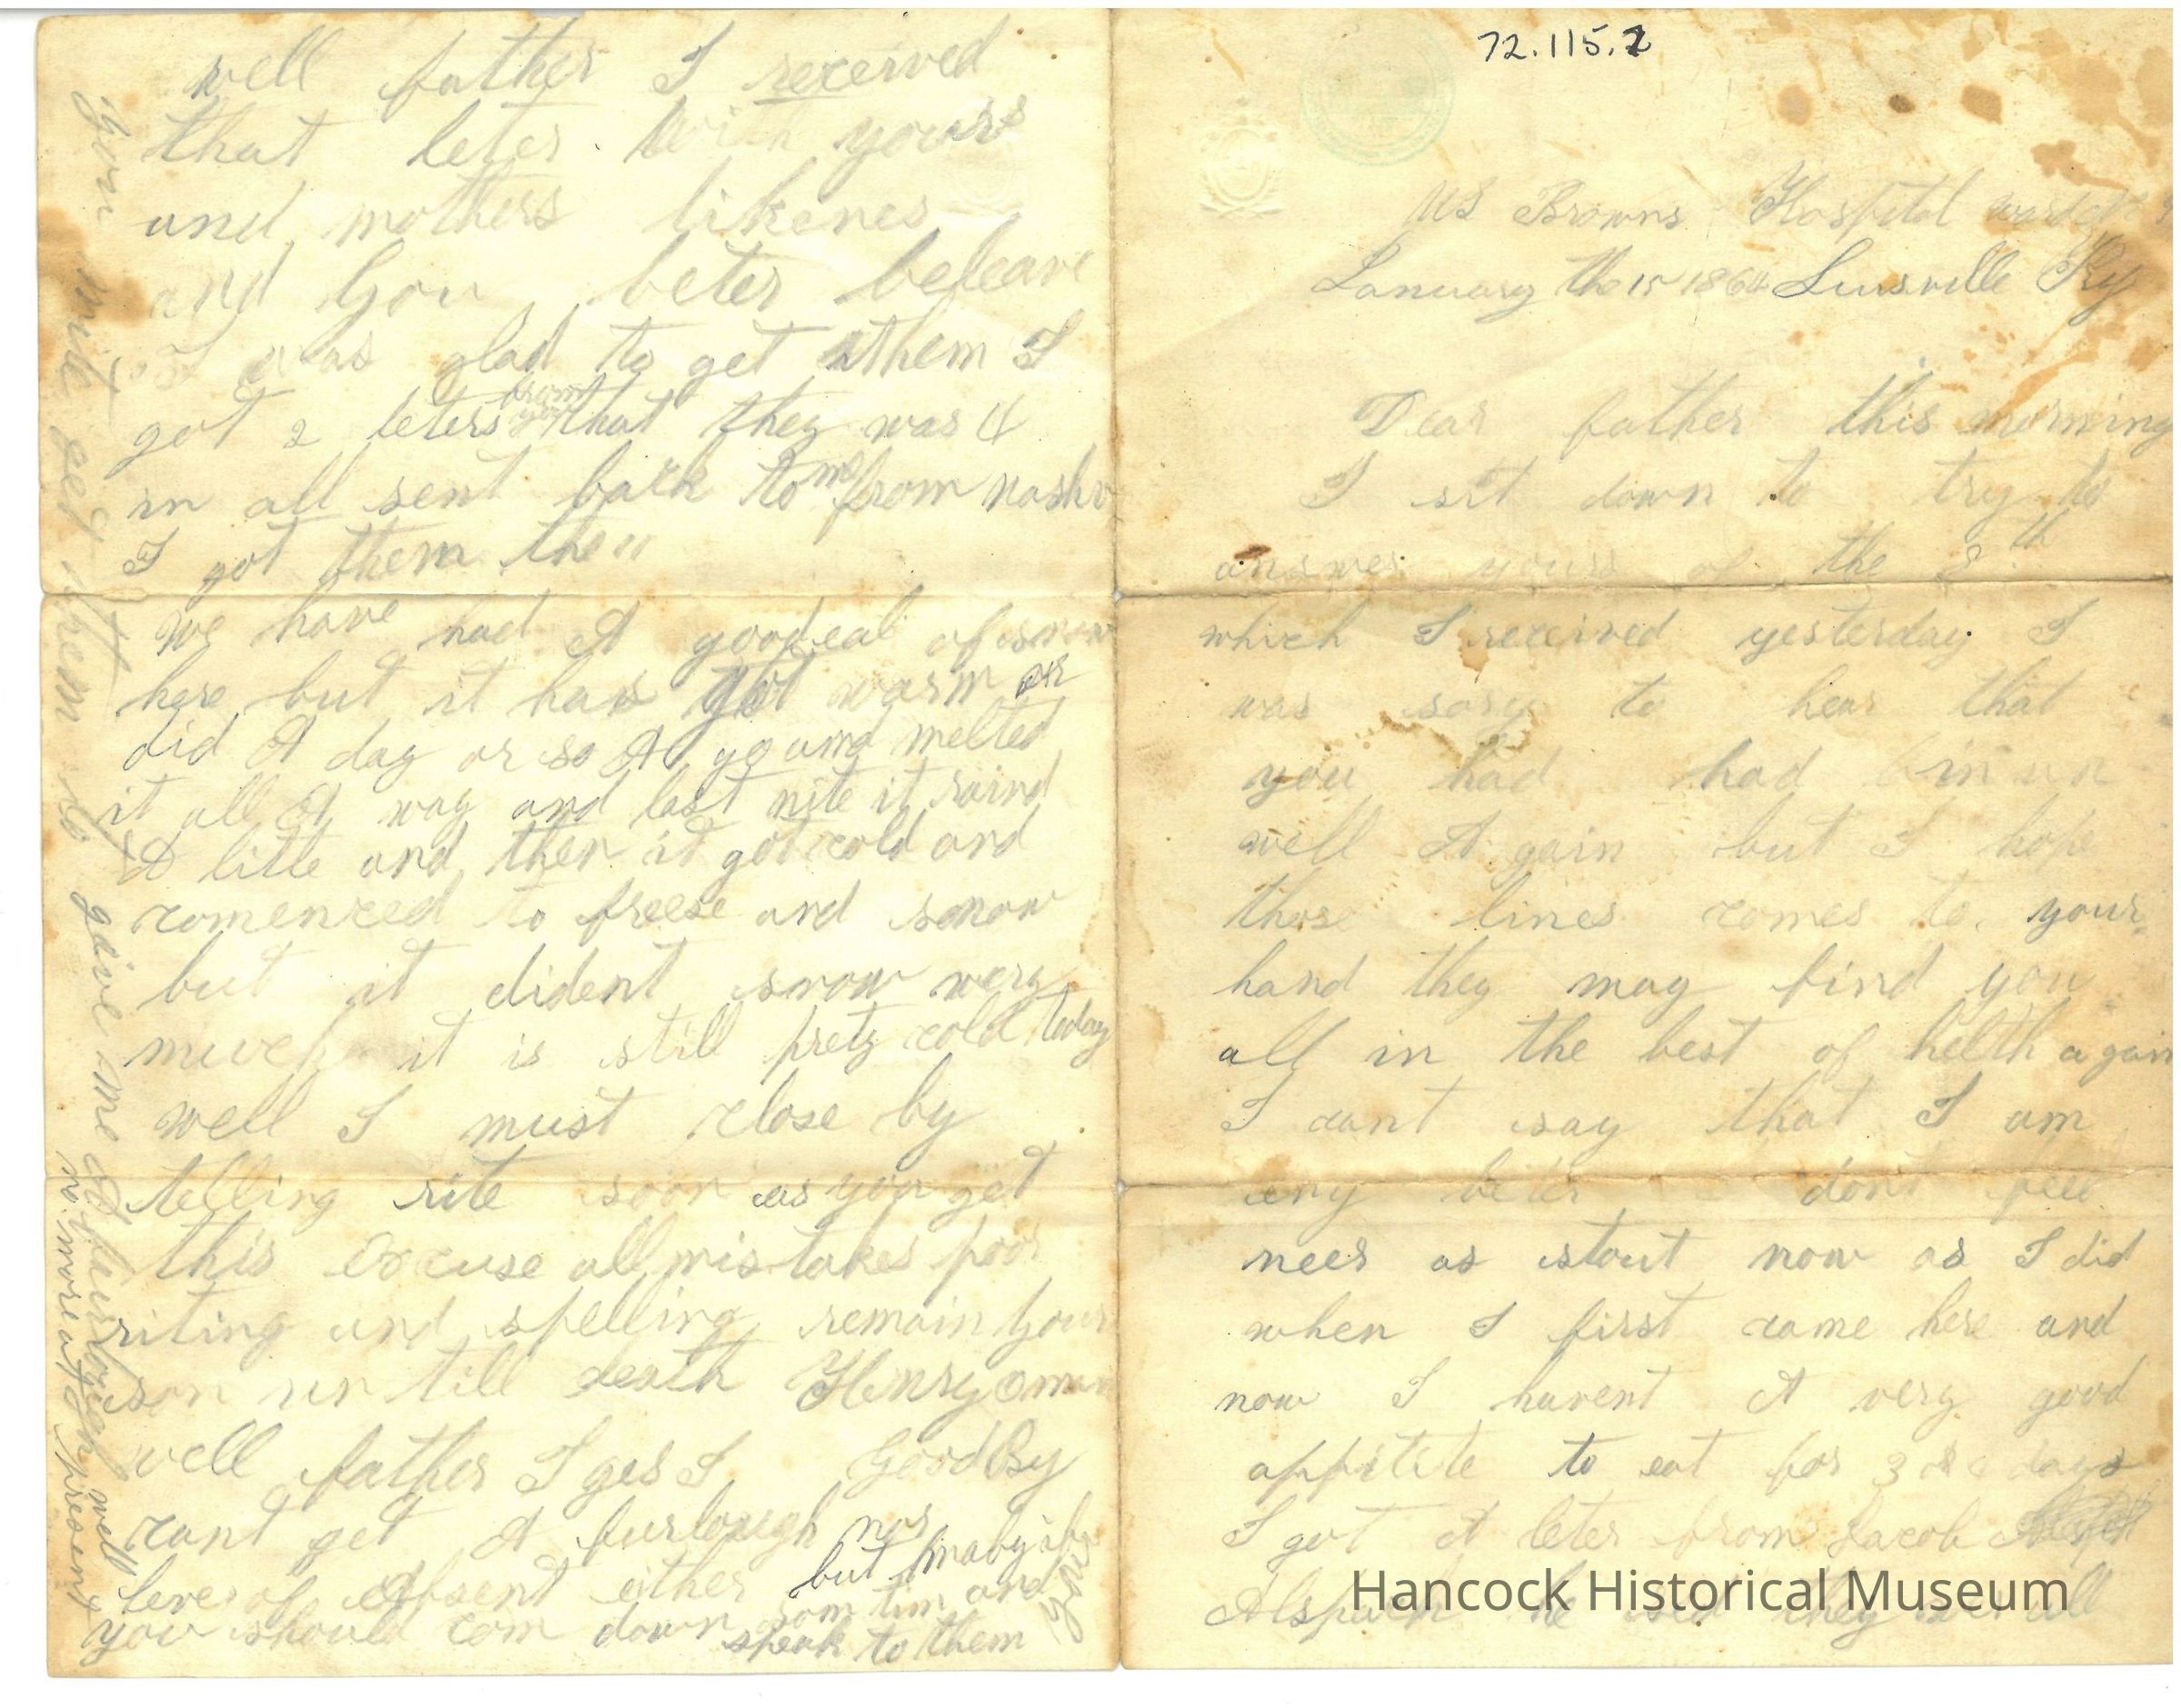 72.115.2
US Browns Hospital ward
January the 15 1864 Luisville Ky
Dear father this morning
I sit down to try to
answer yours of the 8th
which I received yesterday I
was sory to hear that
you had had bin un
well A gain but I hope
these lines comes to your
hand they may find you
all in the best of helth again
I cant say that I am
eny beter dont feel
neer as stout now as I did
when I first came here and
now I havent A very good
appitite to eat for 3 days
I got A leter from Jacob
Alspach he sed they all
Hancock Historical Museum
well father I received
that leter with yours
and mothers likenes
and you beter beleave
I was glad to get them I
got 2 leters from you that they was 4
in all sent back to me from nashv
I got them
we have had A goodeal of snow
here but it has got warm or
did A day or so A go and melted
it all A way and last nite it raind
A litle and then it got cold and
comenced to freese and snow
but it dident snow very
much it is still prety cold today
well I must close by
telling rite soon as you get
this Excuse all mistakes poor
riting and spelling remain your
son un till death Henry Oman
well father I ges I Good By
cant get A furlough nor
leve of Absent either but maby if
you should com down som tim and
speak to them
your
you mite get them to give me A furlough well
no more at present